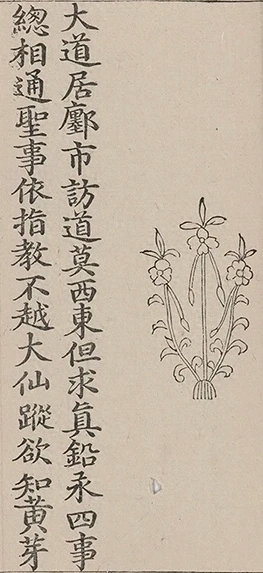 大道居鄽市訪道莫西東但求真鉛汞四事
總相通聖事依指教不越大仙蹤欲知黃芽